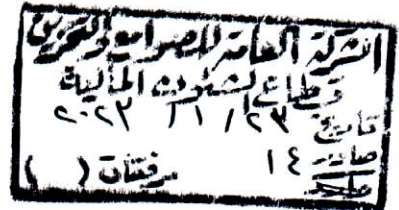 الشركة العامة للصوامع والتخزين
قطاع الشئون المالية
تاريخ ٢٣ / ١ / ٢٠٢٣
صادر ١٤ مرفقات ( )